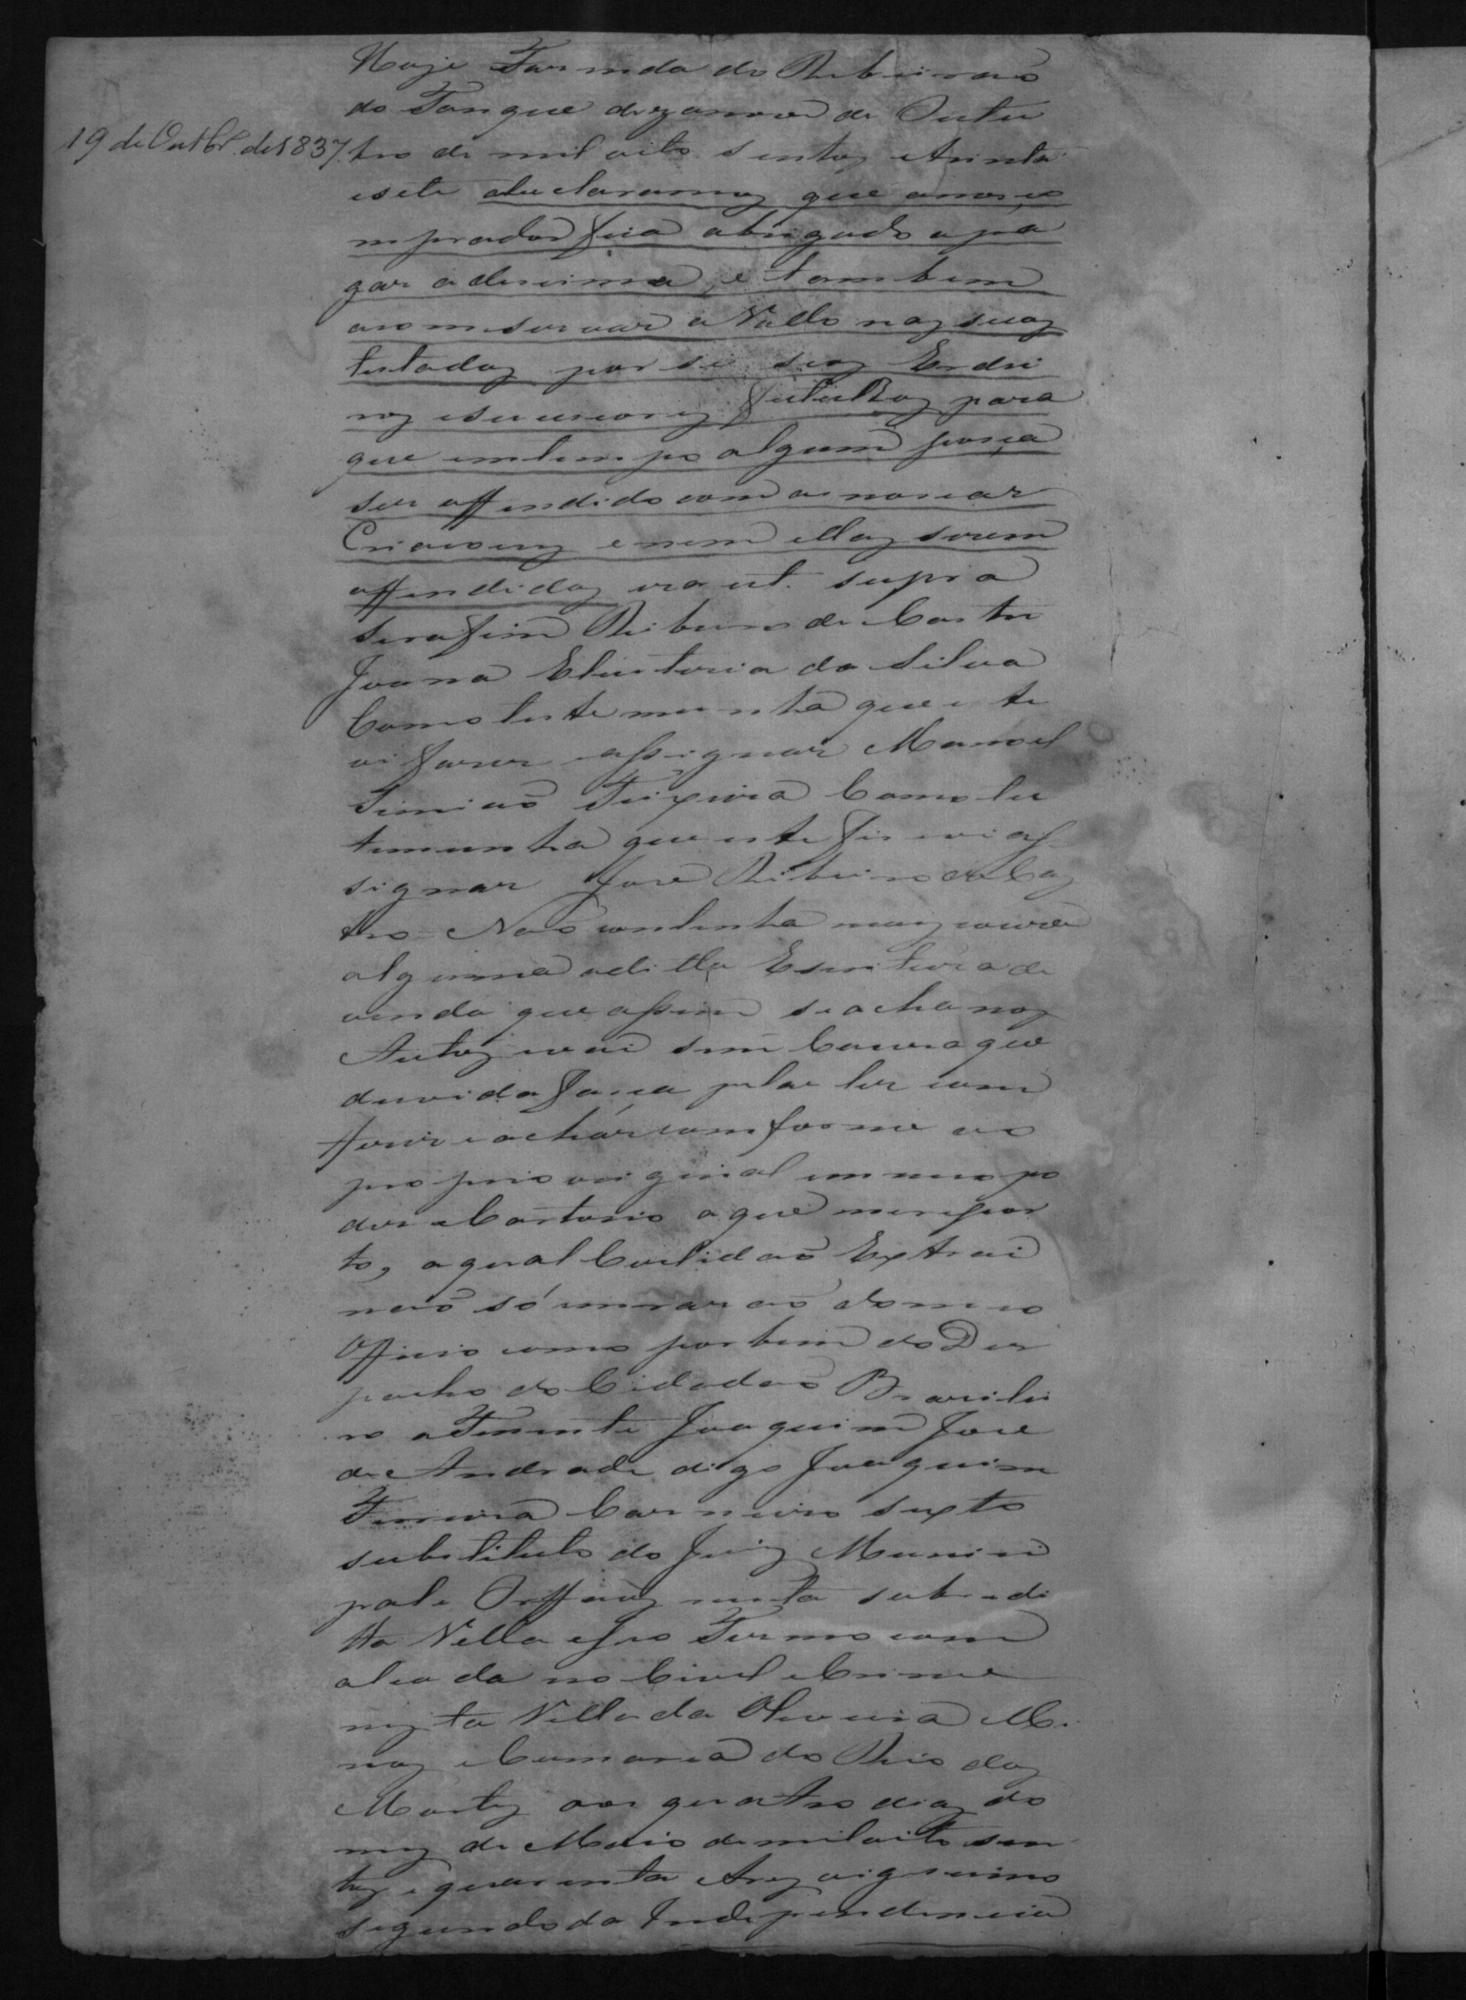 Hoje Fazenda do Ribeiraõ
do Tanque dezanove de Outu
19 de Outbr. de 1837.
bro de mil oito sentos etrinta
esete edeclaramos que onoso co
mprador fica obrigado apa
gar adecima, e tambem
aconservar o Vallo nas suas
testadas por si seus Erdei
ros esucessores futuros para
que emtempo algum possa
ser offendido com as nosas
Criacoens enem ellas serem
offendidas era ut supra
Serafim Ribeiro de Castro
Joana Eleuteria da Silva
Como testemunha que este
vi fazer eassignar Manoel
Teixeira Como tes
temunha que este fis evi as
signar Jose Ribeiro de Cas
tro Naõ continha mais couza
alguma adita Escritura de
venda que assim seacha nos
Autos e vai sem Couza que
duvida faca pelar ler com
ferir eachar comforme ao
proprio original em meo po
der eCartorio aque mereport
to, aqual Certidaõ Extrai
naõ só em razaõ domeo
Officio como por bem do Des
pacho do Cidadaõ Brazilei
ro o Tenente Joaquim Jose
de Andrade digo Joaquim
Ferreira Carneiro sexto
substituto do Juiz Munici
pal e Orffaos nesta sobredi
tta Villa eseo Termo com
alcada no Civel eCrime
nesta Villa da Oliveira Mi
nas eComarca do Rio das
Mortes aos quatro dias do
mez de Maio demiloito sen
tos equarenta etres vigessimo
segundo da Independencia